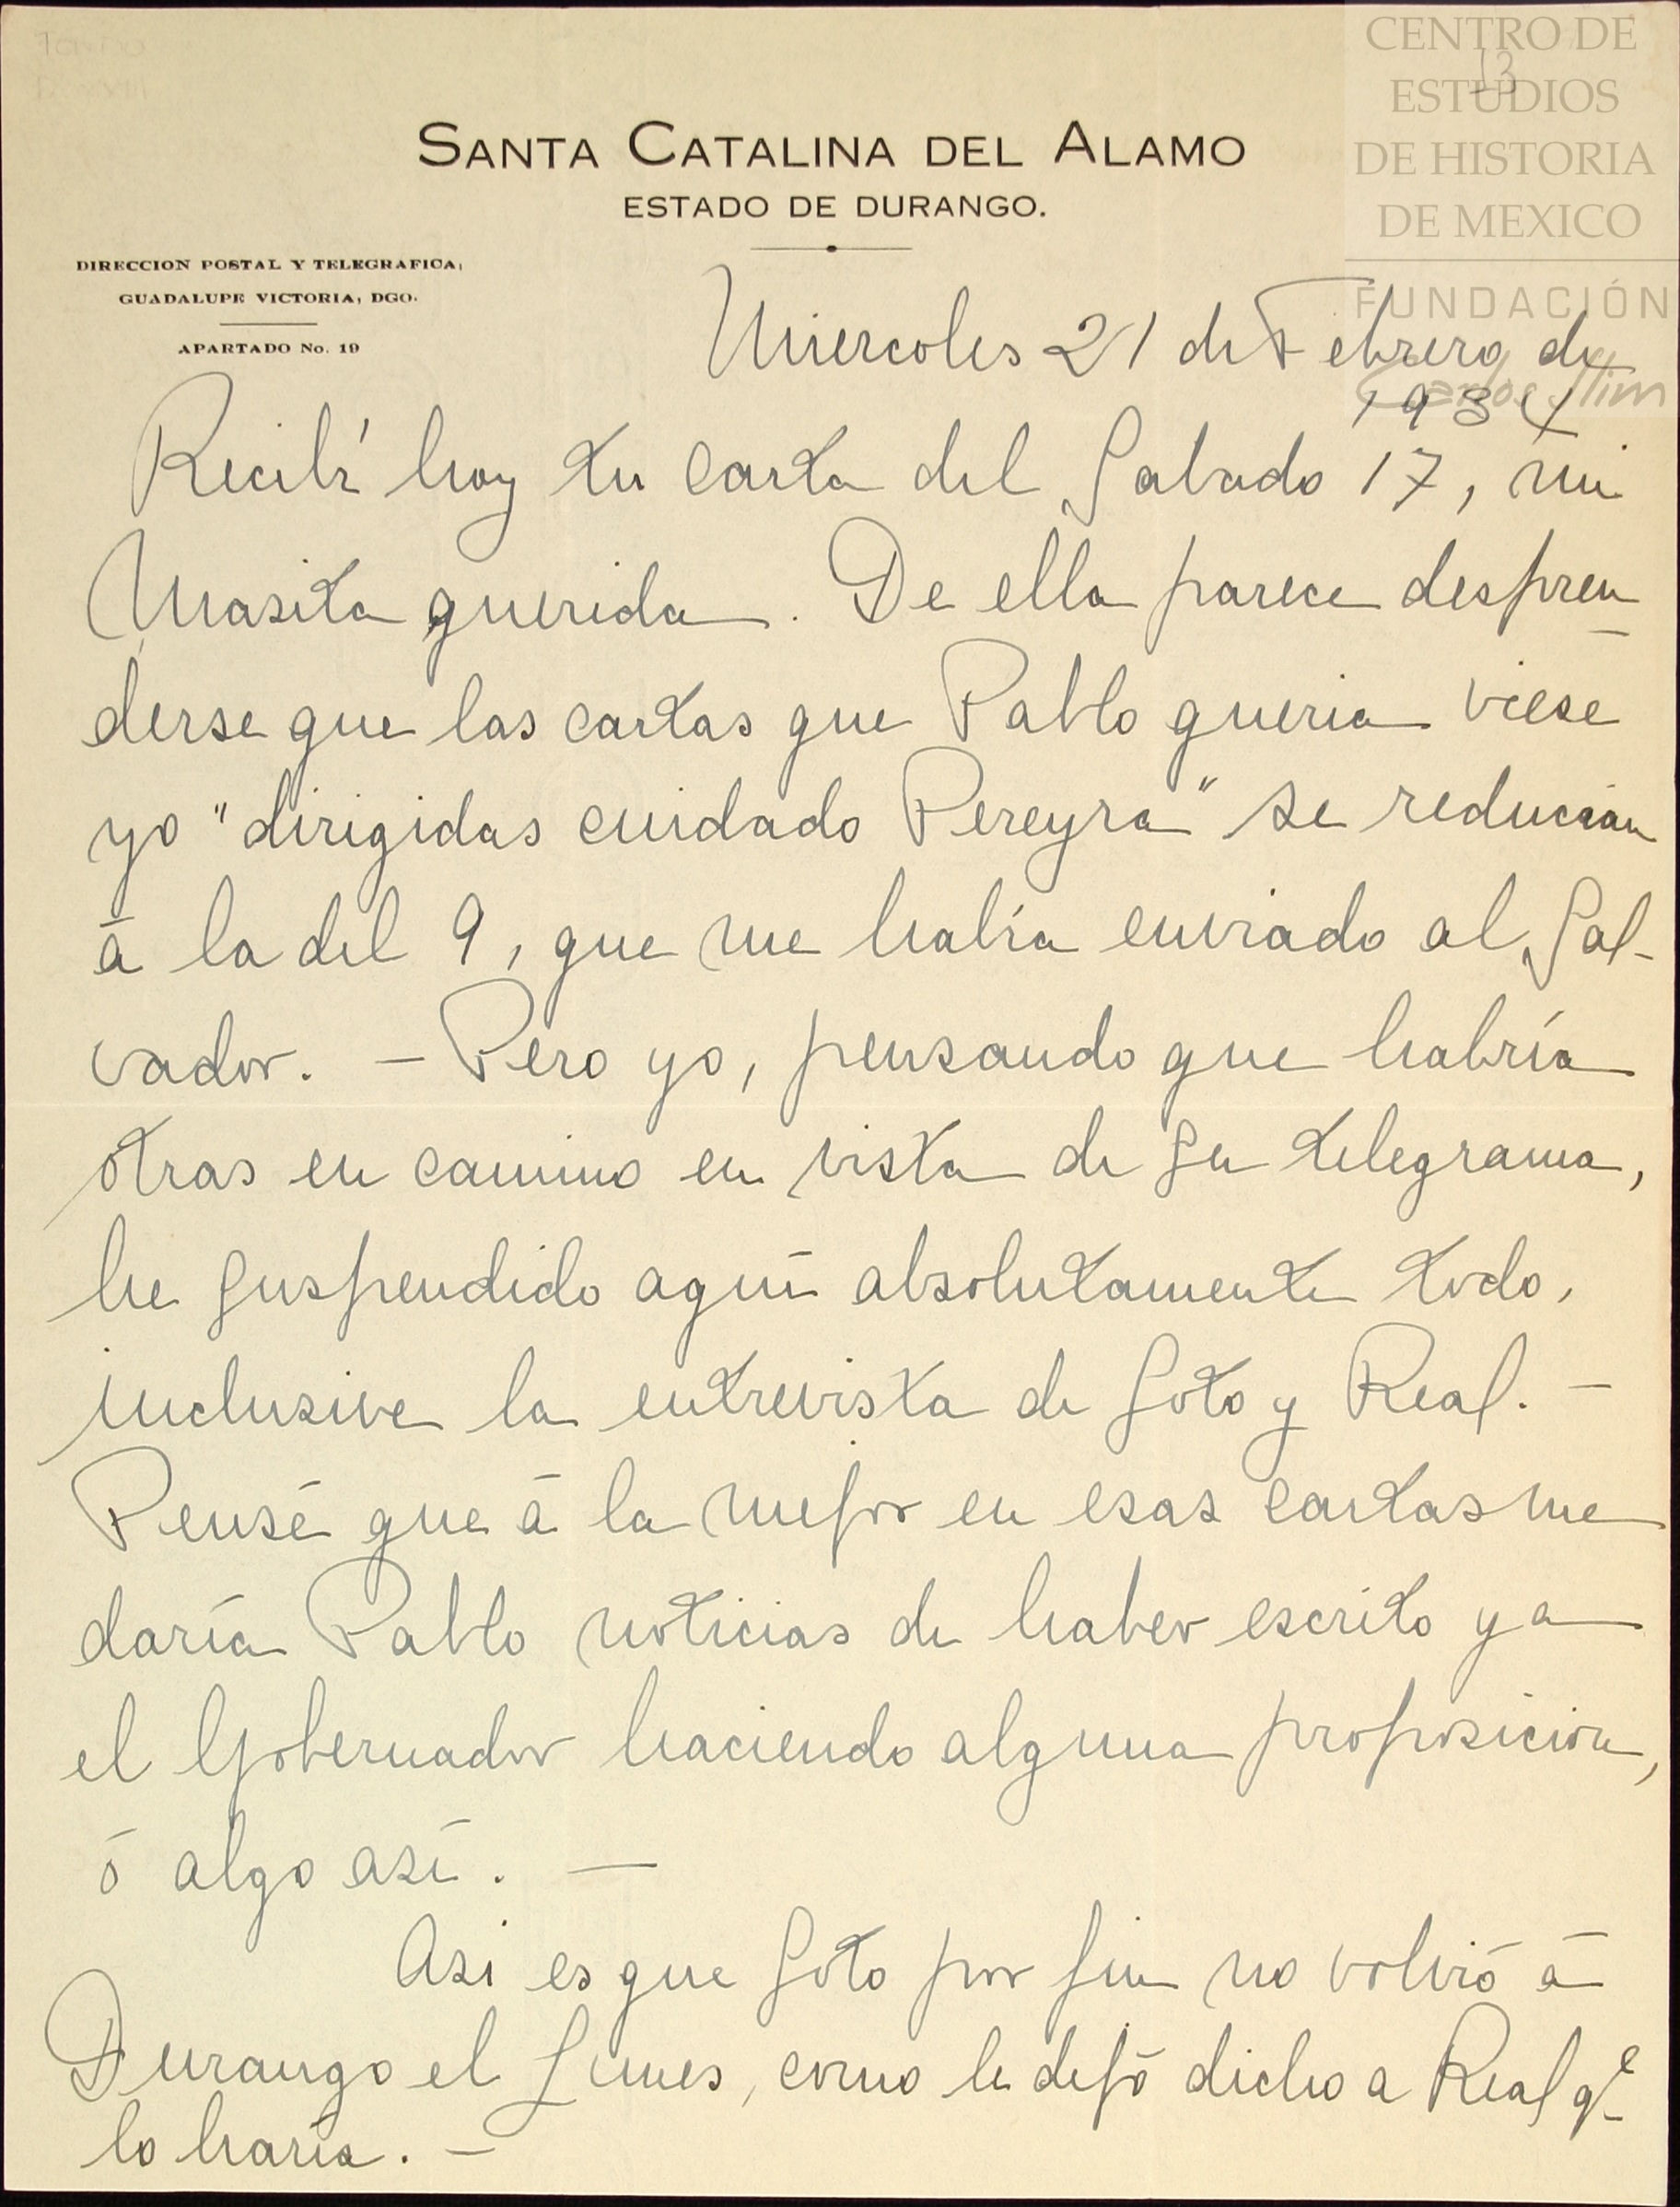 CENTRO DE
ESTUDIOS
DE HISTORIA
DE MEXICO
FUNDACIÓN
Carlos Slim
13
SANTA CATALINA DEL ALAMO
ESTADO DE DURANGO.
DIRECCION POSTAL Y TELEGRAFICA:
GUADALUPE VICTORIA, DGO.
APARTADO No. 19
Miercoles 21 de Febrero de
1934
Recibí hoy tu carta del Sabado 17, mi
Masita querida. De ella parece despren
derse que las cartas que Pablo queria viese
yo "dirigidas cuidado Pereyra" se reducian
á la del 9, que me había enviado al Sal-
vador. — Pero yo, pensando que habría
otras en camino en vista de su telegrama,
he suspendido aquí absolutamente todo,
inclusive la entrevista de Soto y Real. —
Pensé que á la mejor en esas cartas me
daría Pablo noticias de haber escrito ya
el Gobernador haciendo alguna proposicion,
ó algo así. —
Asi es que Soto por fin no volvió á
Durango el Lunes, como le dejó dicho a Real qe
lo haría. —